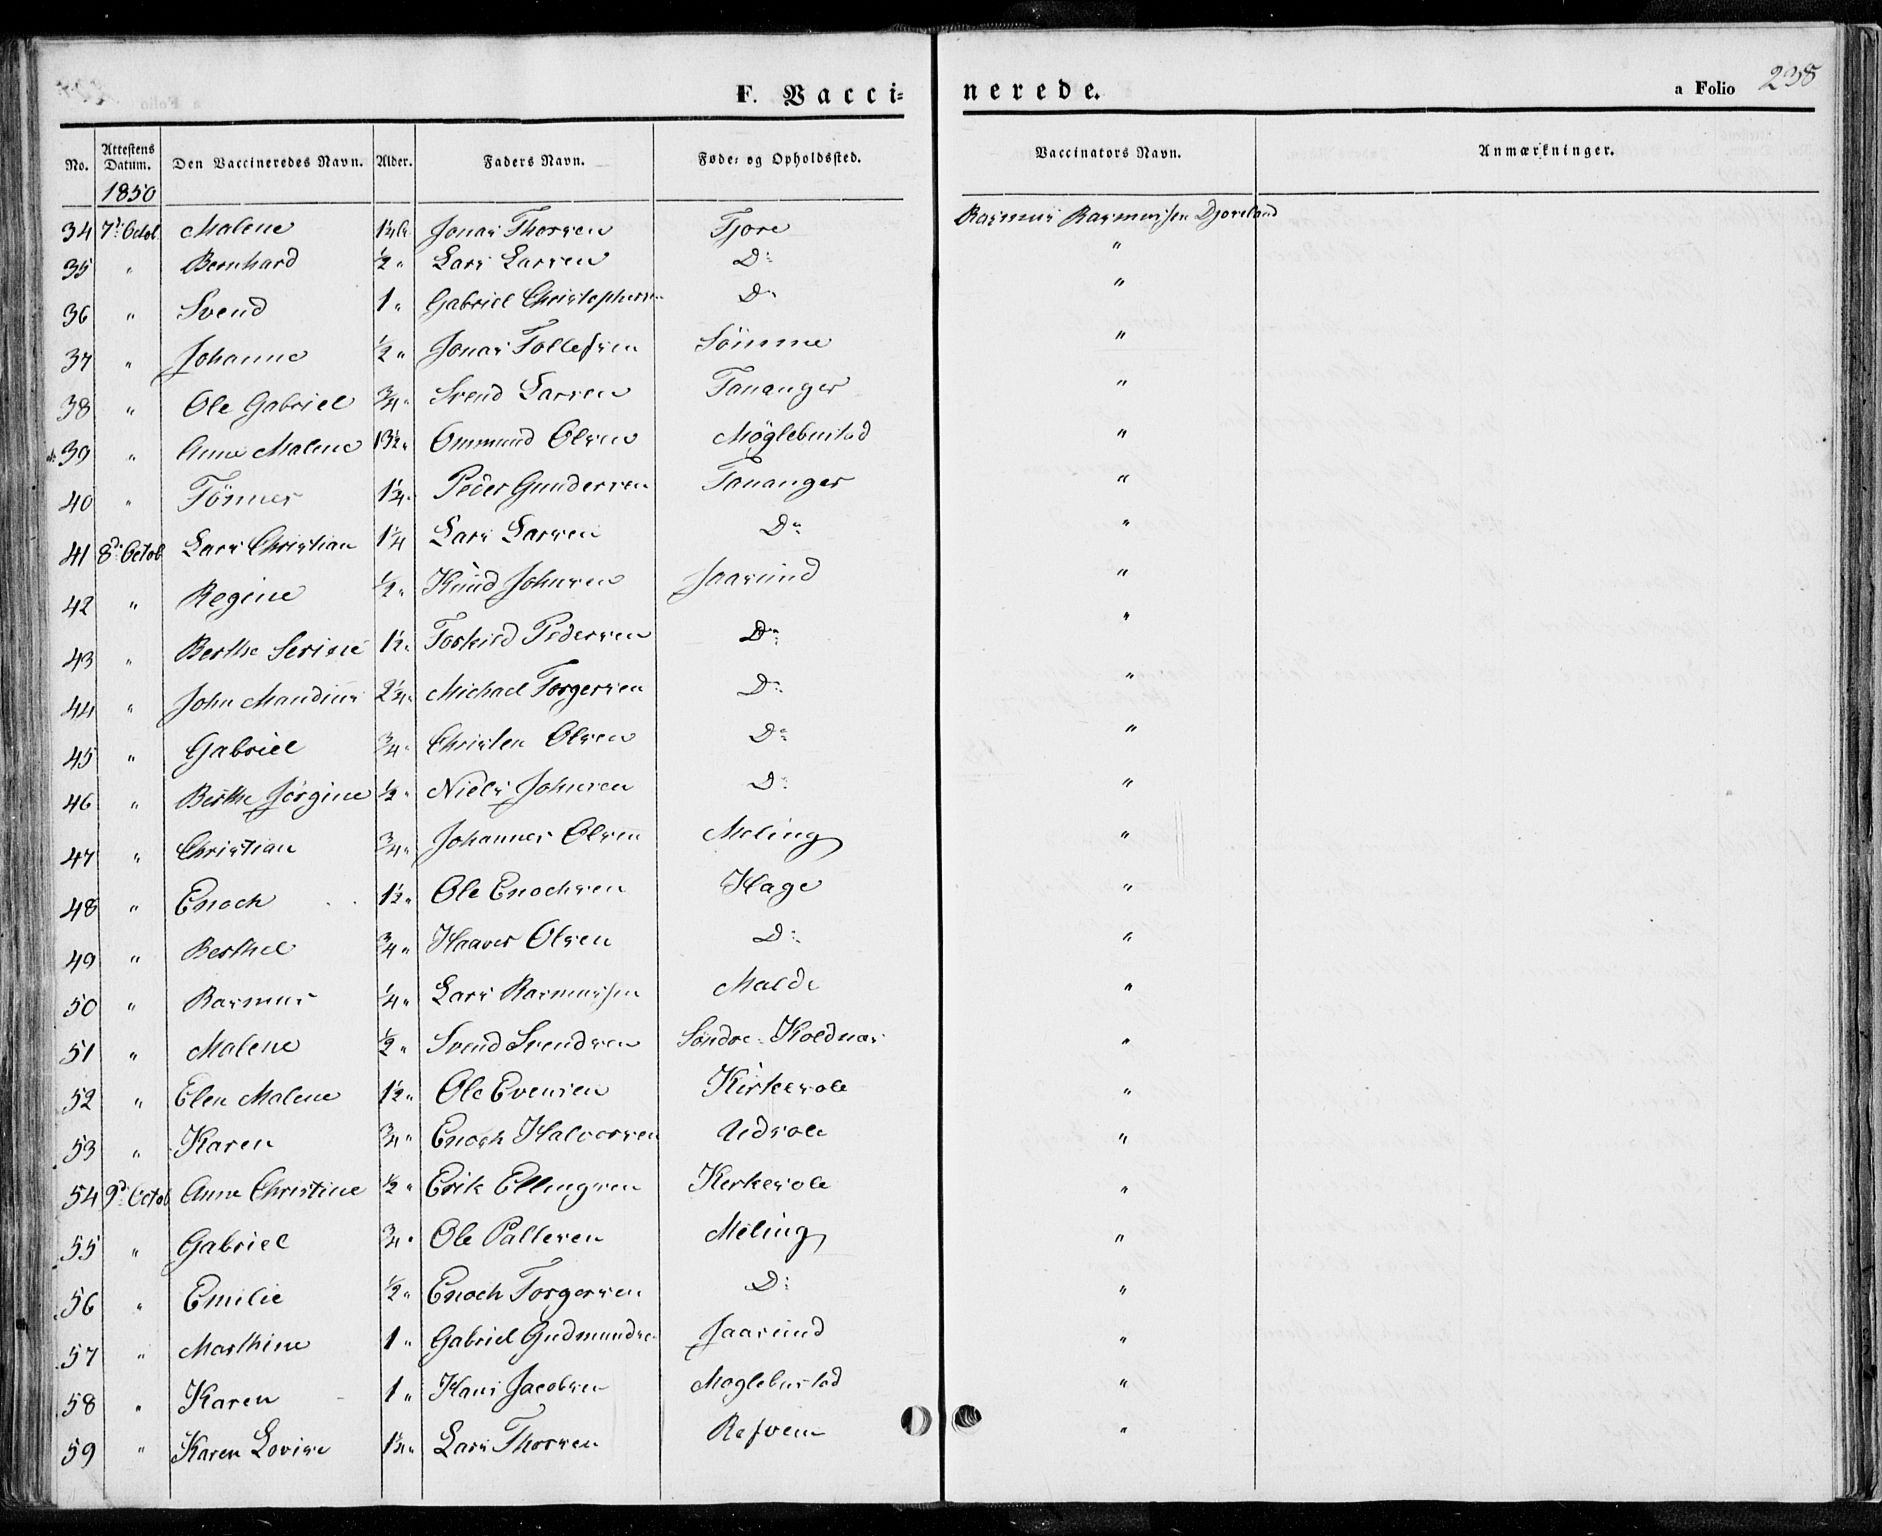 F. Vaccinerede.
a Folio 238
No. | Attestens Datum. | Den Vaccineredes Navn. | Alder. | Faders Navn. | Føde- og Opholdssted. | Vaccinators Navn. | Anmærkninger.
1850
34 7d: Octob Malene Jonas Thorsen Tjore Rasmus Rasmussen Djoreland
35 " Bernhard ½ " Lars Larsen Do: "
36 " Svend 1 " Gabriel Christophersen Do "
37 " Johanne ½ " Jonas Tollefsen Sömme "
38 " Ole Gabriel ¾ " Svend Larsen Tananger "
39 " Anne Malene 13½ " Ommund Olsen Möglebustad "
40 " Tönnes 1¼ " Peder Gundersen Tananger "
41 8d: Octob Lars Christian 1¼ Lars Larsen Do "
42 " Regine ½ " Knud Johnsen Jaasund "
43 " Berthe Serine 1½ " Torkild Pedersen Do: "
44 " John Mandius 2¼ " Michael Torgersen Do: "
45 " Gabriel ¾ " Christen Olsen Do "
46 " Berthe Jörgine ½ " Niels Johnsen Do: "
47 " Christian ¾ " Johannes Olsen Meling "
48 " Enoch 1½ " Ole Enochsen Hage "
49 " Berthel ¾ " Haaver Olsen Do: "
50 " Rasmus ¼ " Lars Rasmussen Malde "
51 " Malene ½ " Svend Svendsen Söndre Koldnæs "
52 " Elen Malene 1½ " Ole Evensen Kirkesole "
53 " Karen ¾ " Enoch Halvorsen Udsole "
54 9d: Octob Anne Christine ½ " Erik Ellingsen Kirkesole "
55 " Gabriel ¾ " Ole Pallesen Meling "
56 " Emilie ½ " Enoch Torgersen Do: "
57 " Marthine 1 " Gabriel Gudmundse Jaasund "
58 " Karen 1 " Hans Jacobsen Moglebustad "
59 " Karen Lovise Lars Thorsen Refvem "